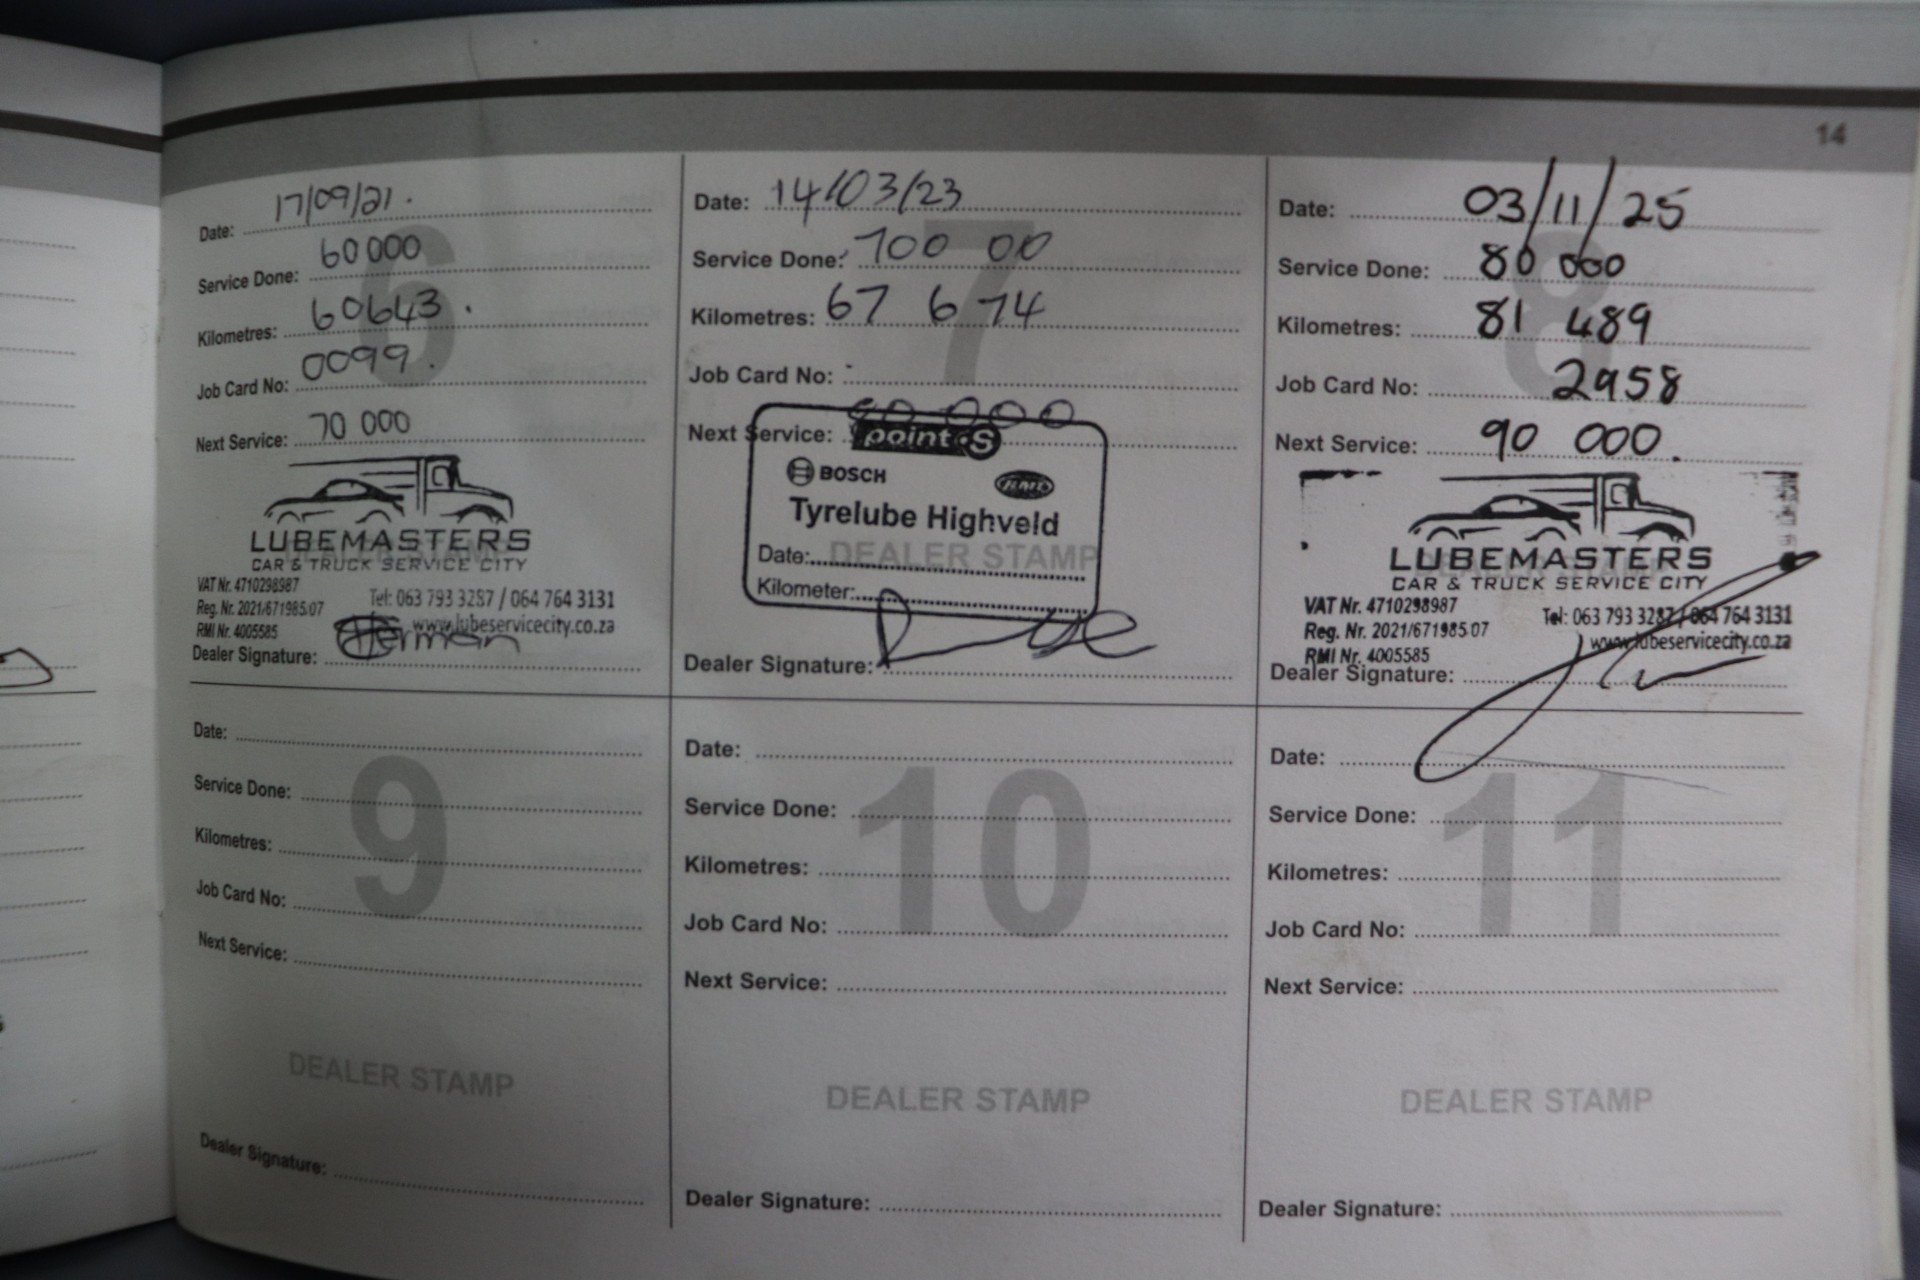 14
Date: 17/09/21.
Service Done: 60 000
Kilometres: 60643.
Job Card No: 0099.
Next Service: 70 000
6
LUBEMASTERS
CAR & TRUCK SERVICE CITY
DEALER STAMP
VAT Nr. 4710298987
Reg. Nr. 2021/671985/07
RMI Nr. 4005585
Tel: 063 793 3287 / 064 764 3131
www.lubeservicecity.co.za
Dealer Signature: Herman
Date: 14/03/23
Service Done: 700 00
Kilometres: 67 674
Job Card No: -
Next Service: 80 000
7
point S
BOSCH
RMI
Tyrelube Highveld
Date:
DEALER STAMP
Kilometer:
Dealer Signature:
Date: 03/11/25
Service Done: 80 000
Kilometres: 81 489
Job Card No: 2958
Next Service: 90 000.
8
LUBEMASTERS
CAR & TRUCK SERVICE CITY
VAT Nr. 4710298987
Reg. Nr. 2021/671985 07
RMI Nr. 4005585
Tel: 063 793 3287 / 064 764 3131
www.lubeservicecity.co.za
Dealer Signature:
Date:
Service Done:
Kilometres:
Job Card No:
Next Service:
9
DEALER STAMP
Dealer Signature:
Date:
Service Done:
Kilometres:
Job Card No:
Next Service:
10
DEALER STAMP
Dealer Signature:
Date:
Service Done:
Kilometres:
Job Card No:
Next Service:
11
DEALER STAMP
Dealer Signature: